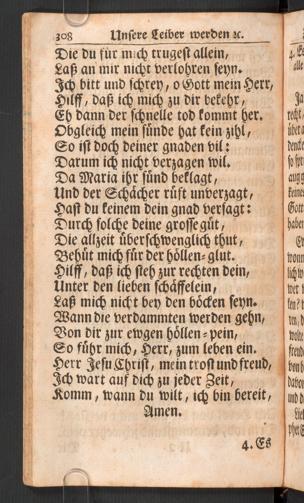 308 Unsere Leiber werden ꝛc.
Die du für mich trugest allein,
Laß an mir nicht verlohren seyn.
Jch bitt und schrey, o Gott mein Herr,
Hilff, daß ich mich zu dir bekehr,
Eh dann der schnelle tod kommt her.
Obgleich mein sünde hat kein zihl,
So ist doch deiner gnaden vil:
Darum ich nicht verzagen wil.
Da Maria ihr sünd beklagt,
Und der Schächer rüft unverzagt,
Hast du keinem dein gnad versagt:
Durch solche deine grosse güt,
Die allzeit überschwenglich thut,
Behüt mich für der höllen-glut.
Hilff, daß ich steh zur rechten dein,
Unter den lieben schäffelein,
Laß mich nicht bey den böcken seyn.
Wann die verdammten werden gehn,
Von dir zur ewgen höllen-pein,
So führ mich, Herr, zum leben ein.
Herr Jesu Christ, mein trost und freud,
Jch wart auf dich zu jeder Zeit,
Komm, wann du wilt, ich bin bereit,
Amen.
4. Es